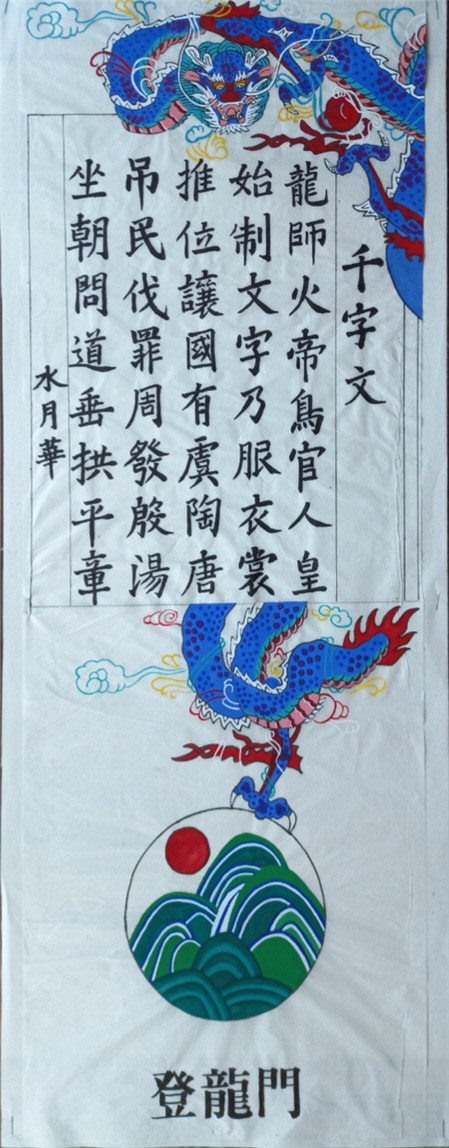 千字文
龍師火帝鳥官人皇
始制文字乃服衣裳
推位讓國有虞陶唐
吊民伐罪周發殷湯
坐朝問道垂拱平章
水月華
登龍門